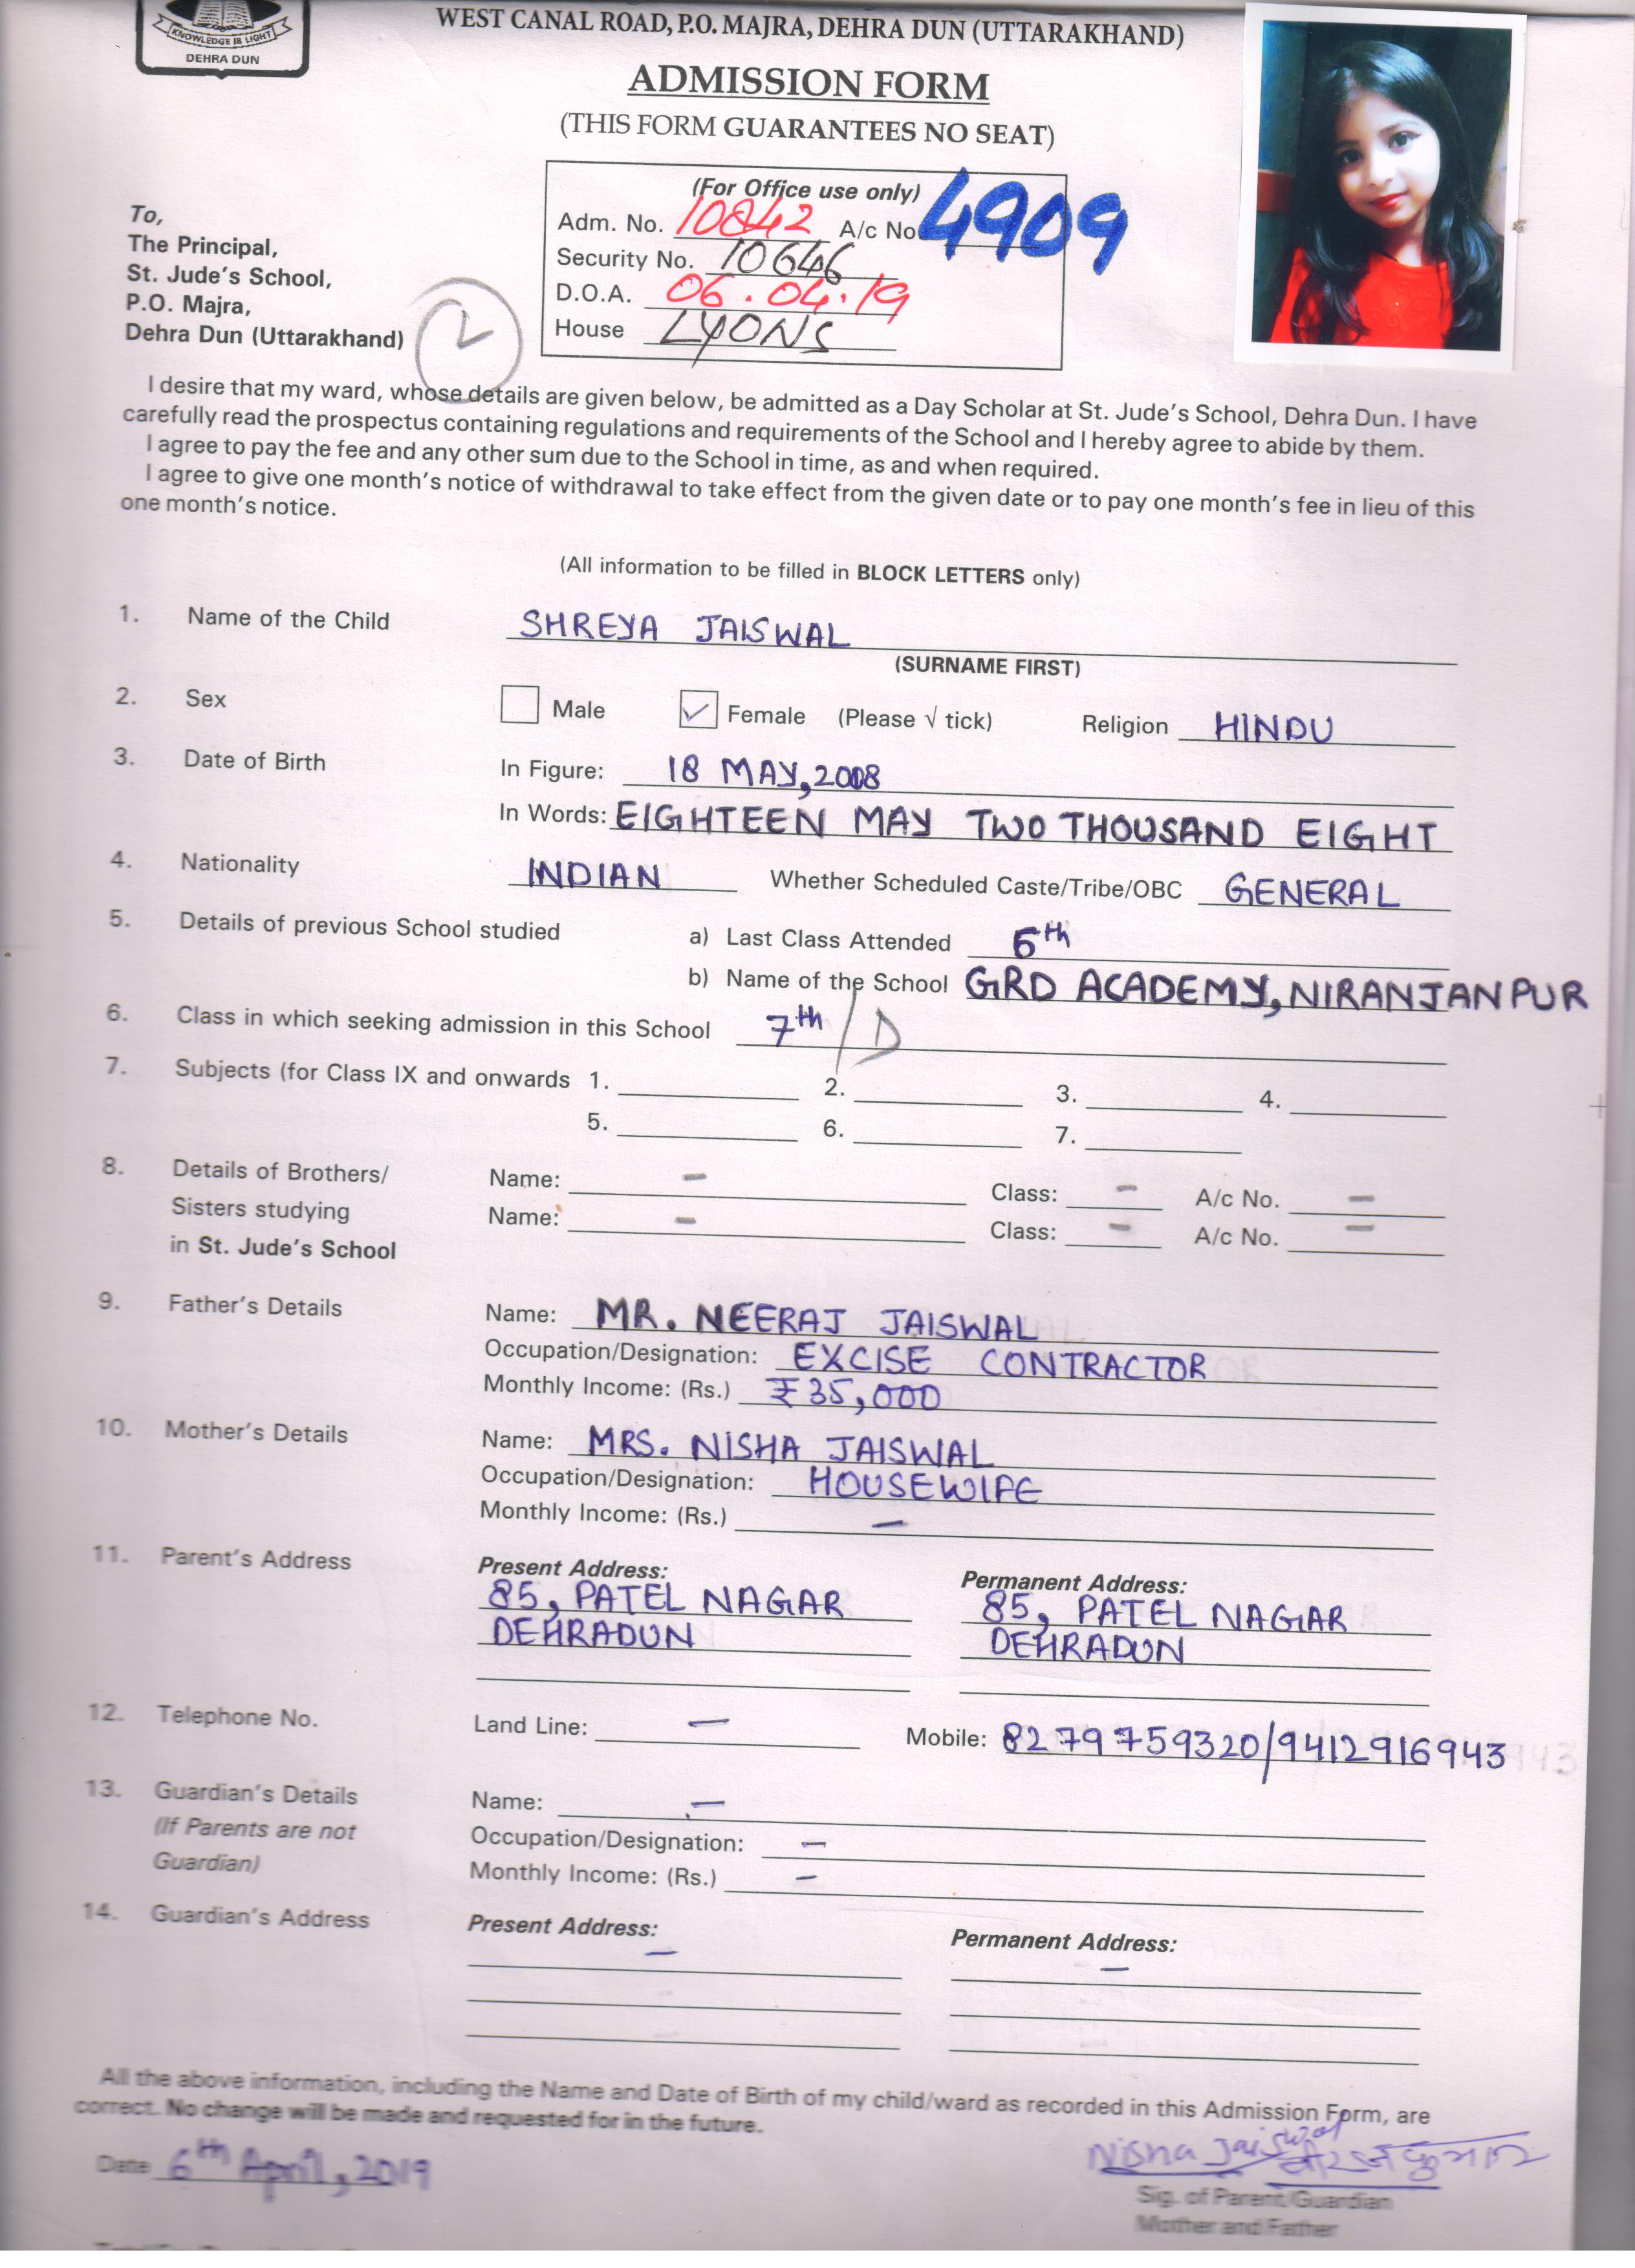 KNOWLEDGE IS LIGHT
DEHRA DUN
WEST CANAL ROAD, P.O. MAJRA, DEHRA DUN (UTTARAKHAND)
ADMISSION FORM
(THIS FORM GUARANTEES NO SEAT)
(For Office use only)
Adm. No. 10842 A/c No. 4909
Security No. 10646
D.O.A. 06.04.19
House LYONS
To,
The Principal,
St. Jude's School,
P.O. Majra,
Dehra Dun (Uttarakhand)
2
I desire that my ward, whose details are given below, be admitted as a Day Scholar at St. Jude's School, Dehra Dun. I have
carefully read the prospectus containing regulations and requirements of the School and I hereby agree to abide by them.
I agree to pay the fee and any other sum due to the School in time, as and when required.
I agree to give one month's notice of withdrawal to take effect from the given date or to pay one month's fee in lieu of this
one month's notice.
(All information to be filled in BLOCK LETTERS only)
1. Name of the Child SHREYA JAISWAL
(SURNAME FIRST)
2. Sex Male ✓ Female (Please √ tick) Religion HINDU
3. Date of Birth In Figure: 18 MAY, 2008
In Words: EIGHTEEN MAY TWO THOUSAND EIGHT
4. Nationality INDIAN Whether Scheduled Caste/Tribe/OBC GENERAL
5. Details of previous School studied a) Last Class Attended 6th
b) Name of the School GRD ACADEMY, NIRANJANPUR
6. Class in which seeking admission in this School 7th / D
7. Subjects (for Class IX and onwards 1. 2. 3. 4.
5. 6. 7.
8. Details of Brothers/ Name: – Class: – A/c No. –
Sisters studying Name: – Class: – A/c No. –
in St. Jude's School
9. Father's Details Name: MR. NEERAJ JAISWAL
Occupation/Designation: EXCISE CONTRACTOR
Monthly Income: (Rs.) ₹35,000
10. Mother's Details Name: MRS. NISHA JAISWAL
Occupation/Designation: HOUSEWIFE
Monthly Income: (Rs.) –
11. Parent's Address Present Address: Permanent Address:
85, PATEL NAGAR 85, PATEL NAGAR
DEHRADUN DEHRADUN
12. Telephone No. Land Line: – Mobile: 8279759320/9412916943
13. Guardian's Details Name: –
(If Parents are not Occupation/Designation: –
Guardian) Monthly Income: (Rs.) –
14. Guardian's Address Present Address: – Permanent Address: –
All the above information, including the Name and Date of Birth of my child/ward as recorded in this Admission Form, are
correct. No change will be made and requested for in the future.
Date 6th April, 2019 Nisha Jaiswal
Sig. of Parent/Guardian
Mother and Father